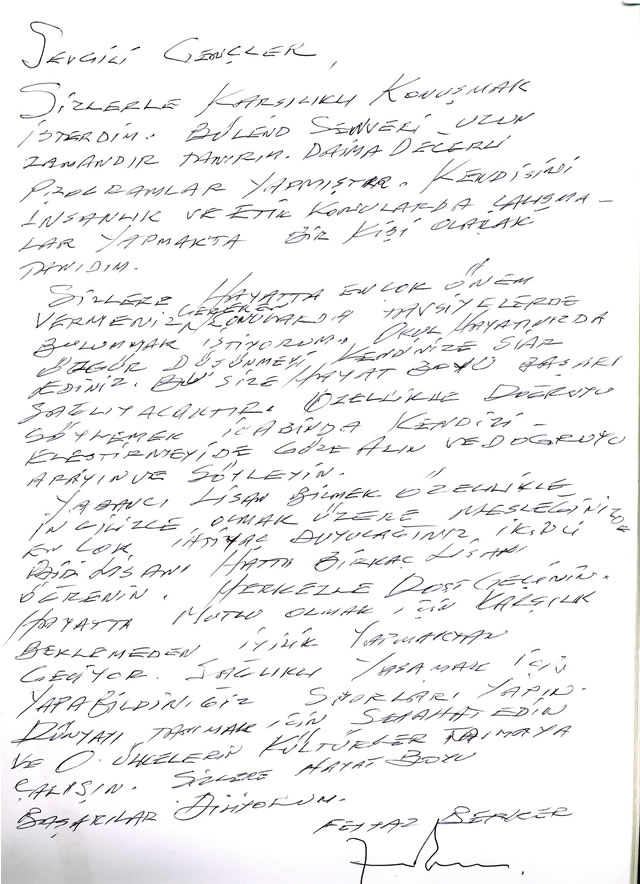 SEVGİLİ GENÇLER,
SİZLERLE KARŞILIKLI KONUŞMAK
İSTERDİM. BÜLEND ŞENVERİ UZUN
ZAMANDIR TANIRIM. DAİMA DEĞERLİ
PROGRAMLAR YAPMIŞTIR. KENDİSİNİ
İNSANLIK VE ETİK KONULARDA ÇALIŞMA-
LAR YAPMAKTA BİR KİŞİ OLARAK
TANIDIM.
SİZLERE HAYATTA EN ÇOK ÖNEM
VERMENİZ GEREKEN KONULARDA TAVSİYELERDE
BULUNMAK İSTİYORUM. OKUL HAYATINIZDA
ÖZGÜR DÜŞÜNMEYİ KENDİNİZE ŞİAR
EDİNİZ. BU SİZE HAYAT BOYU BAŞARI
SAĞLIYACAKTIR. ÖZELLİKLE DOĞRUYU
SÖYLEMEK İCABINDA KENDİZİ
ELEŞTİRMEYİDE GÖZE ALIN VE DOĞRUYU
ARAYIN VE SÖYLEYİN.
YABANCI LİSAN BİLMEK ÖZELLİKLE
İNGİLİZCE OLMAK ÜZERE MESLEĞİNİZDE
EN ÇOK İHTİYAÇ DUYUCAĞINIZ İKİNCİ
BİR LİSANI HATTA BİRKAÇ LİSANI
ÖĞRENİN. HERKEZLE DOST GEÇİNİN.
HAYATTA MUTLU OLMAK İÇİN KARŞILIK
BEKLEMEDEN İYİLİK YAPMAKTAN
GEÇİYOR. SAĞLIKLI YAŞAMAK İÇİN
YAPABİLDİNİĞİZ SPORLARI YAPIN.
DÜNYAYI TANIMAK İÇİN SEYAHAT EDİN
VE O ÜLKELERİN KÜLTÜRLER TANIMAYA
ÇALIŞIN. SİZLERE HAYAT BOYU
BAŞARILAR DİLİYORUM.
FEYYAZ BERKER